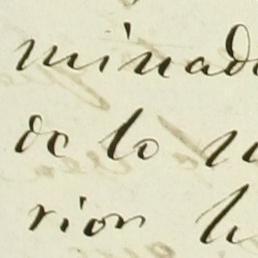 minad
de lo
rion